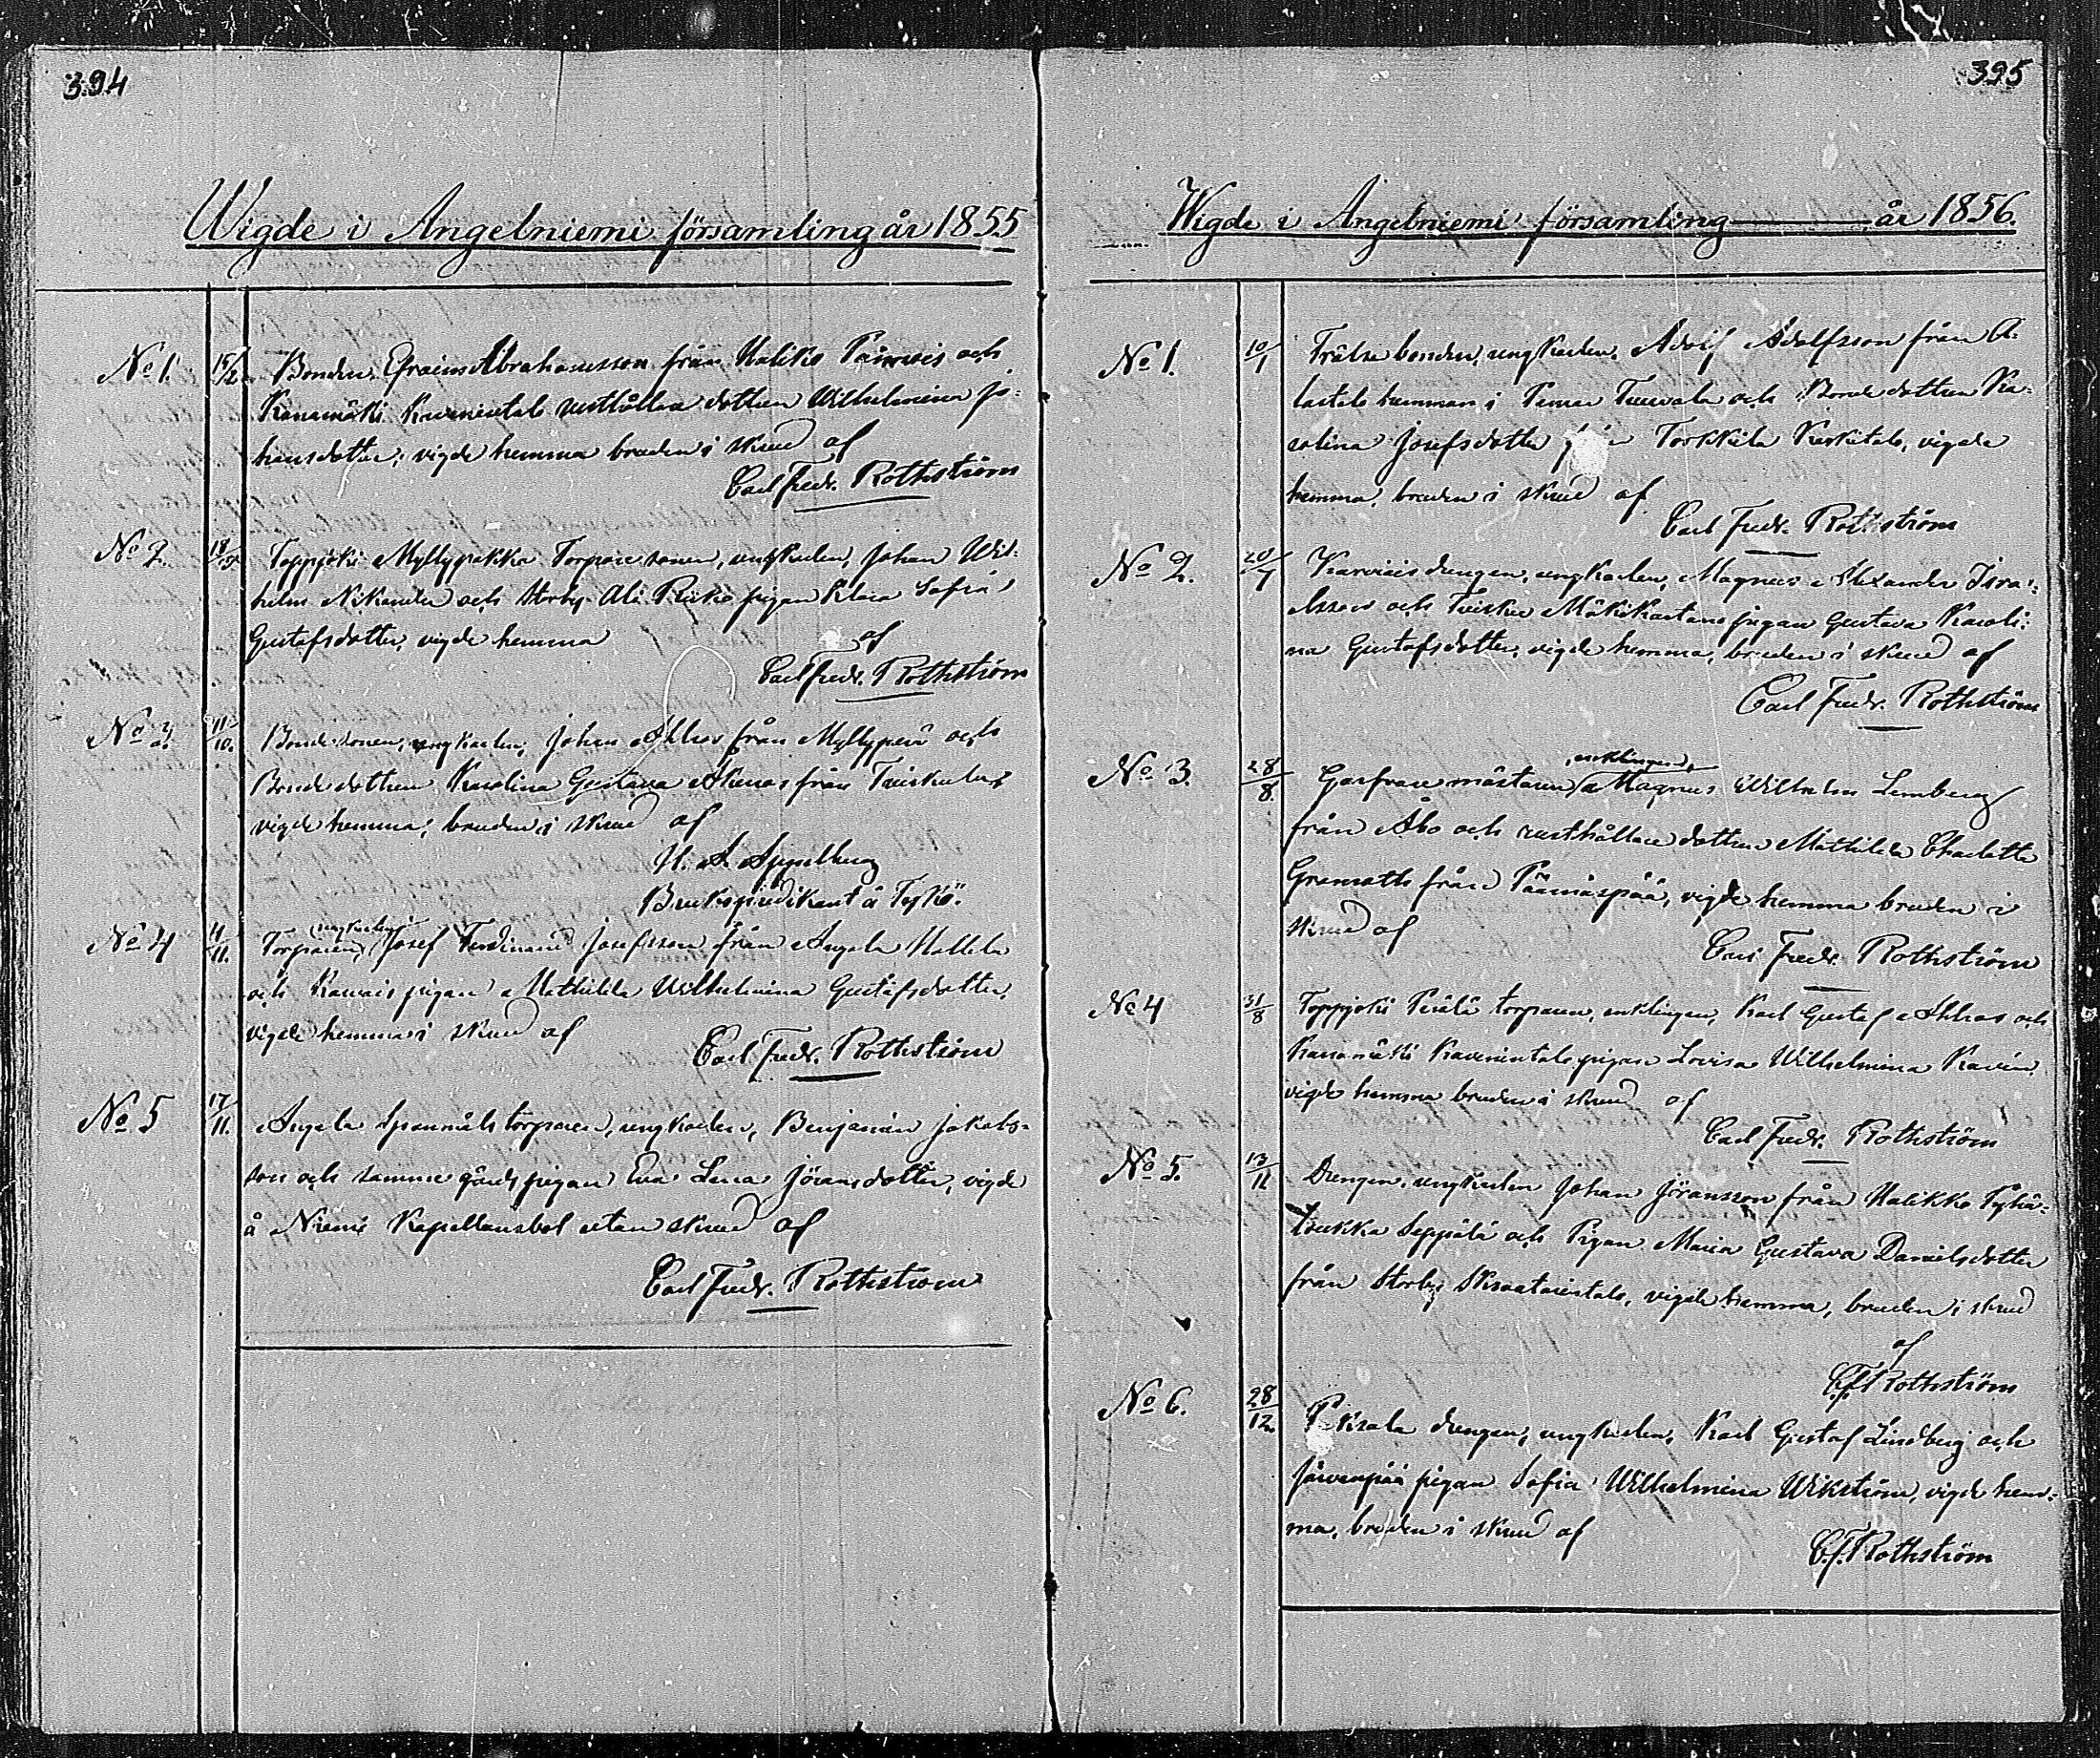 394
Wigde i Angelniemi församling år 1855
No 1. 15/2 Bonden Efraim Abrahamsson från Haliko och
Kanamäki Kavenientalo rusthållare dottren Wilhelmina Jo-
hansdotter, vigde hemma bruden i skrud af
Carl Fredr. Rothström
No 2. 18/9 Toppjoki Myllypakka Torpare sonen, ungkarlen, Johan Wil-
helm Nikander och Storby Ali Rickó pigan Klara Sofia
Gustafsdotter, vigde hemma af
Carl Fredr. Rothström
No 3. 11/10. Bonde sonen, ungkarlen, Johan Ahlros från Myllyperä och
Bonde dottren Karolina Gustava Alenas från Tuiskula
vigde hemma, bruden i skrud af
H. A. Spjelberg
Bruks predikant å Tykö.
No 4 11/11. Torparen, ungkarlen, Josef Ferdinand Josefsson från Angela Mattila
och Karvais pigan Mathilda Wilhelmina Gustafsdotter,
vigde hemma i skrud af
Carl Fredr. Rothström
No 5 17/11. Angela Spannmåls torparen, ungkarlen, Benjamin Jakobs-
son och samma gårds pigan Eva Lena Jöransdotter, vigde
å Niemi Kapellansbol utan skrud af
Carl Fredr. Rothström
395
Wigde i Angelniemi församling år 1856.
No 1. 10/1 Frälse bonden, ungkarlen, Adolf Adolfsson från A-
lastalo hemman i Pemar och Bonde dottren Ka-
rolina Josefsdotter från Torkkila Keskitalo, vigde
hemma, bruden i skrud af
Carl Fredr. Rothström
No 2. 20/7 Karvais drengen, ungkarlen, Magnus Alexander Isra-
elsson och Tuisku Mäkikartano pigan Gustava Karoli-
na Gustafsdotter, vigde hemma, bruden i skrud af
Carl Fredr. Rothström
No 3. 28/8. Garfvare mästaren, enklingen, Magnus Wilhelm Lemberg
från Åbo och rusthållare dottren Mathilda Charlotta
Granroth från Päärnäspää, vigde hemma bruden i
skrud af
Carl Fredr. Rothström
No 4 31/8 Toppjoki Perälä torparen, enklingen, Karl Gustaf Ahlros och
Kanamäki Kavenientalo pigan Lovisa Wilhelmina Kavén
vigde hemma bruden i skrud af
Carl Fredr. Rothström
No 5. 13/11 Drengen, ungkarlen Johan Jöransson från Halikko Pyhä-
loukka Seppälä och Pigan Maria Gustava Danielsdotter
från Storby Skraatarintalo, vigde hemma, bruden i skrud
af
C.F. Rothström
No 6. 28/12. Peksala drengen, ungkarlen, Karl Gustaf Lindberg och
Järvenpää pigan Sofia Wilhelmina Wikström, vigde hem-
ma, bruden i skrud af
C.F. Rothström